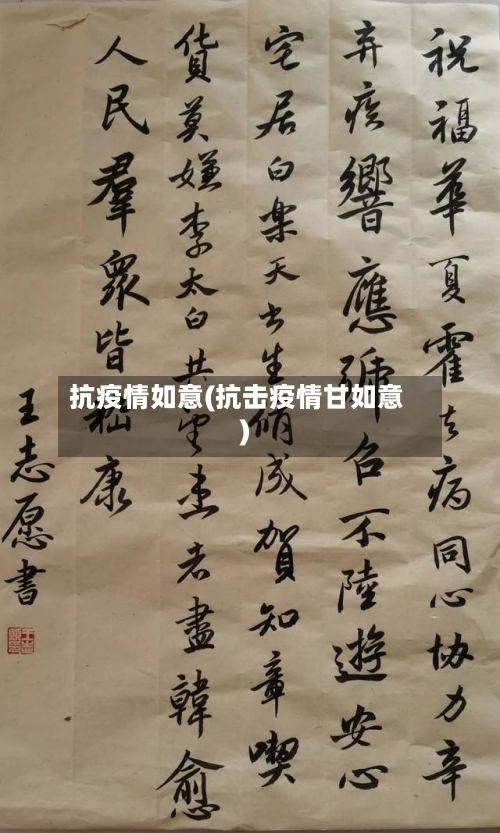 祝福華夏霍去病同心協力辛
弃疾響應號召不陸遊安心
宅居白楽天生成賀知章喫
貨莫嫌李太白共患者盡韓愈
人民羣衆皆嵇康
王志愿書
抗疫情如意(抗击疫情甘如意
)